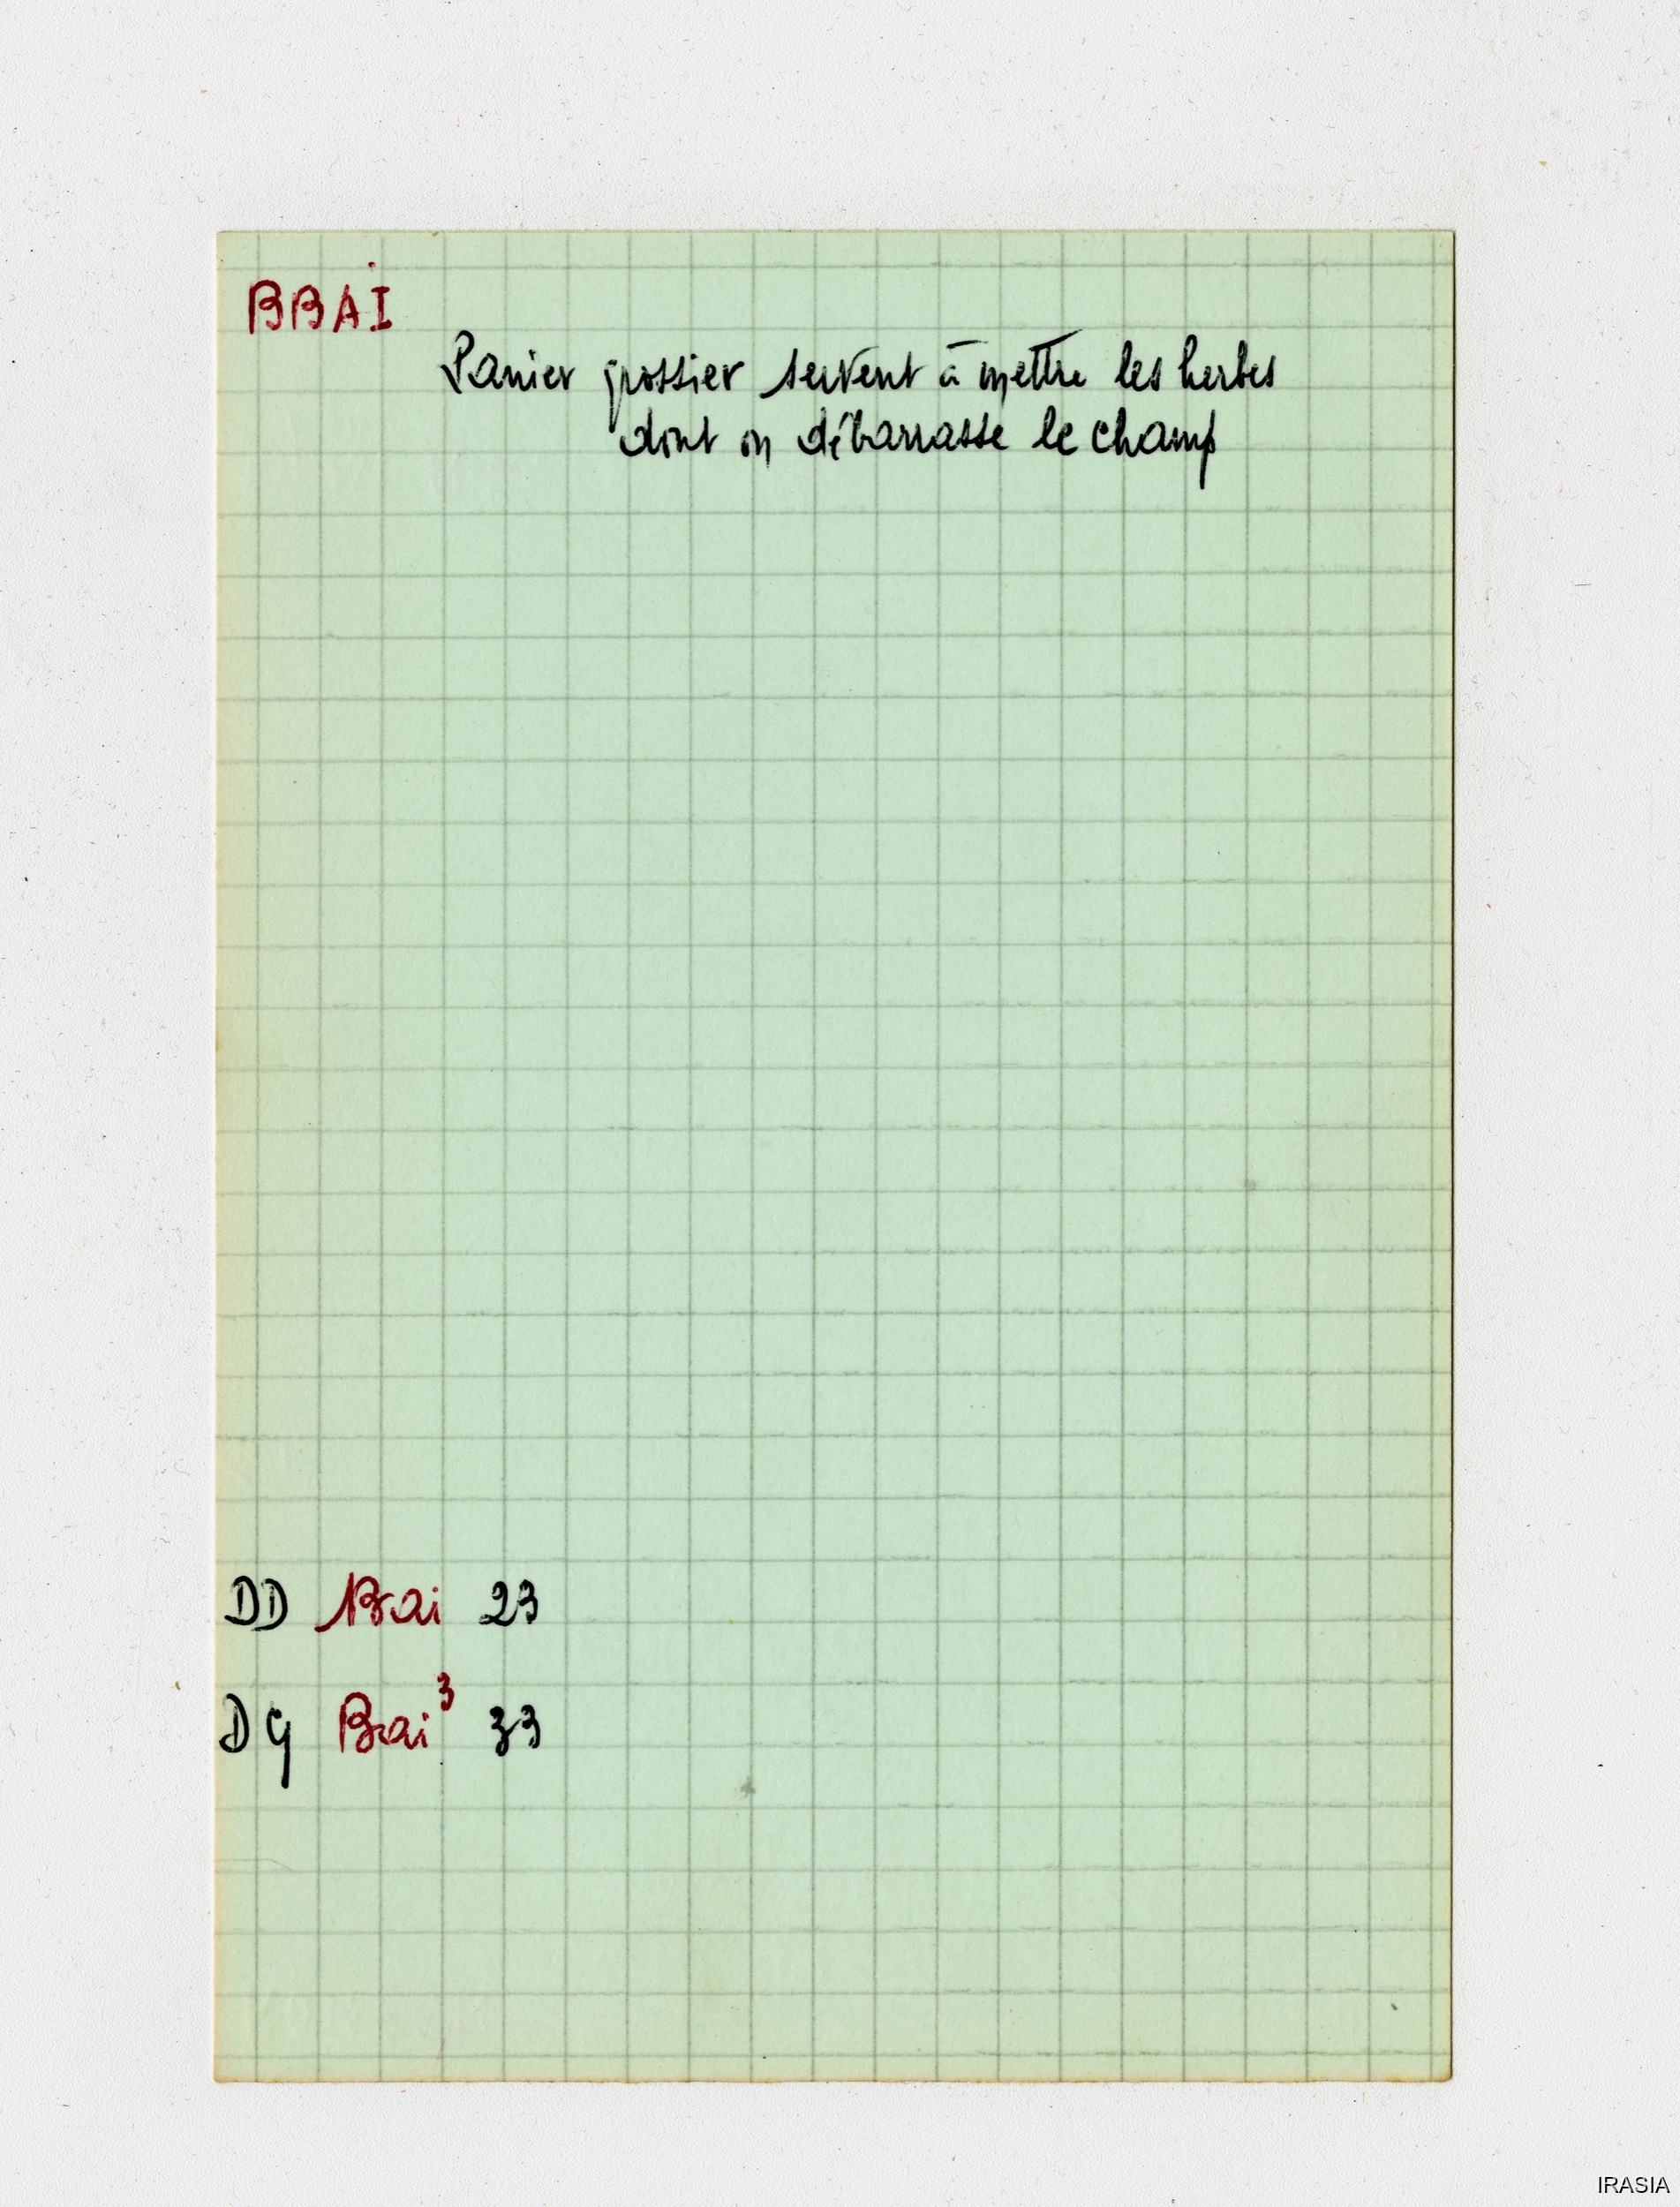 BBAI
Panier grossier servent à mettre les herbes
dont on débarrasse le champ
DD Brai 23
DG Brai³ 33
IRASIA